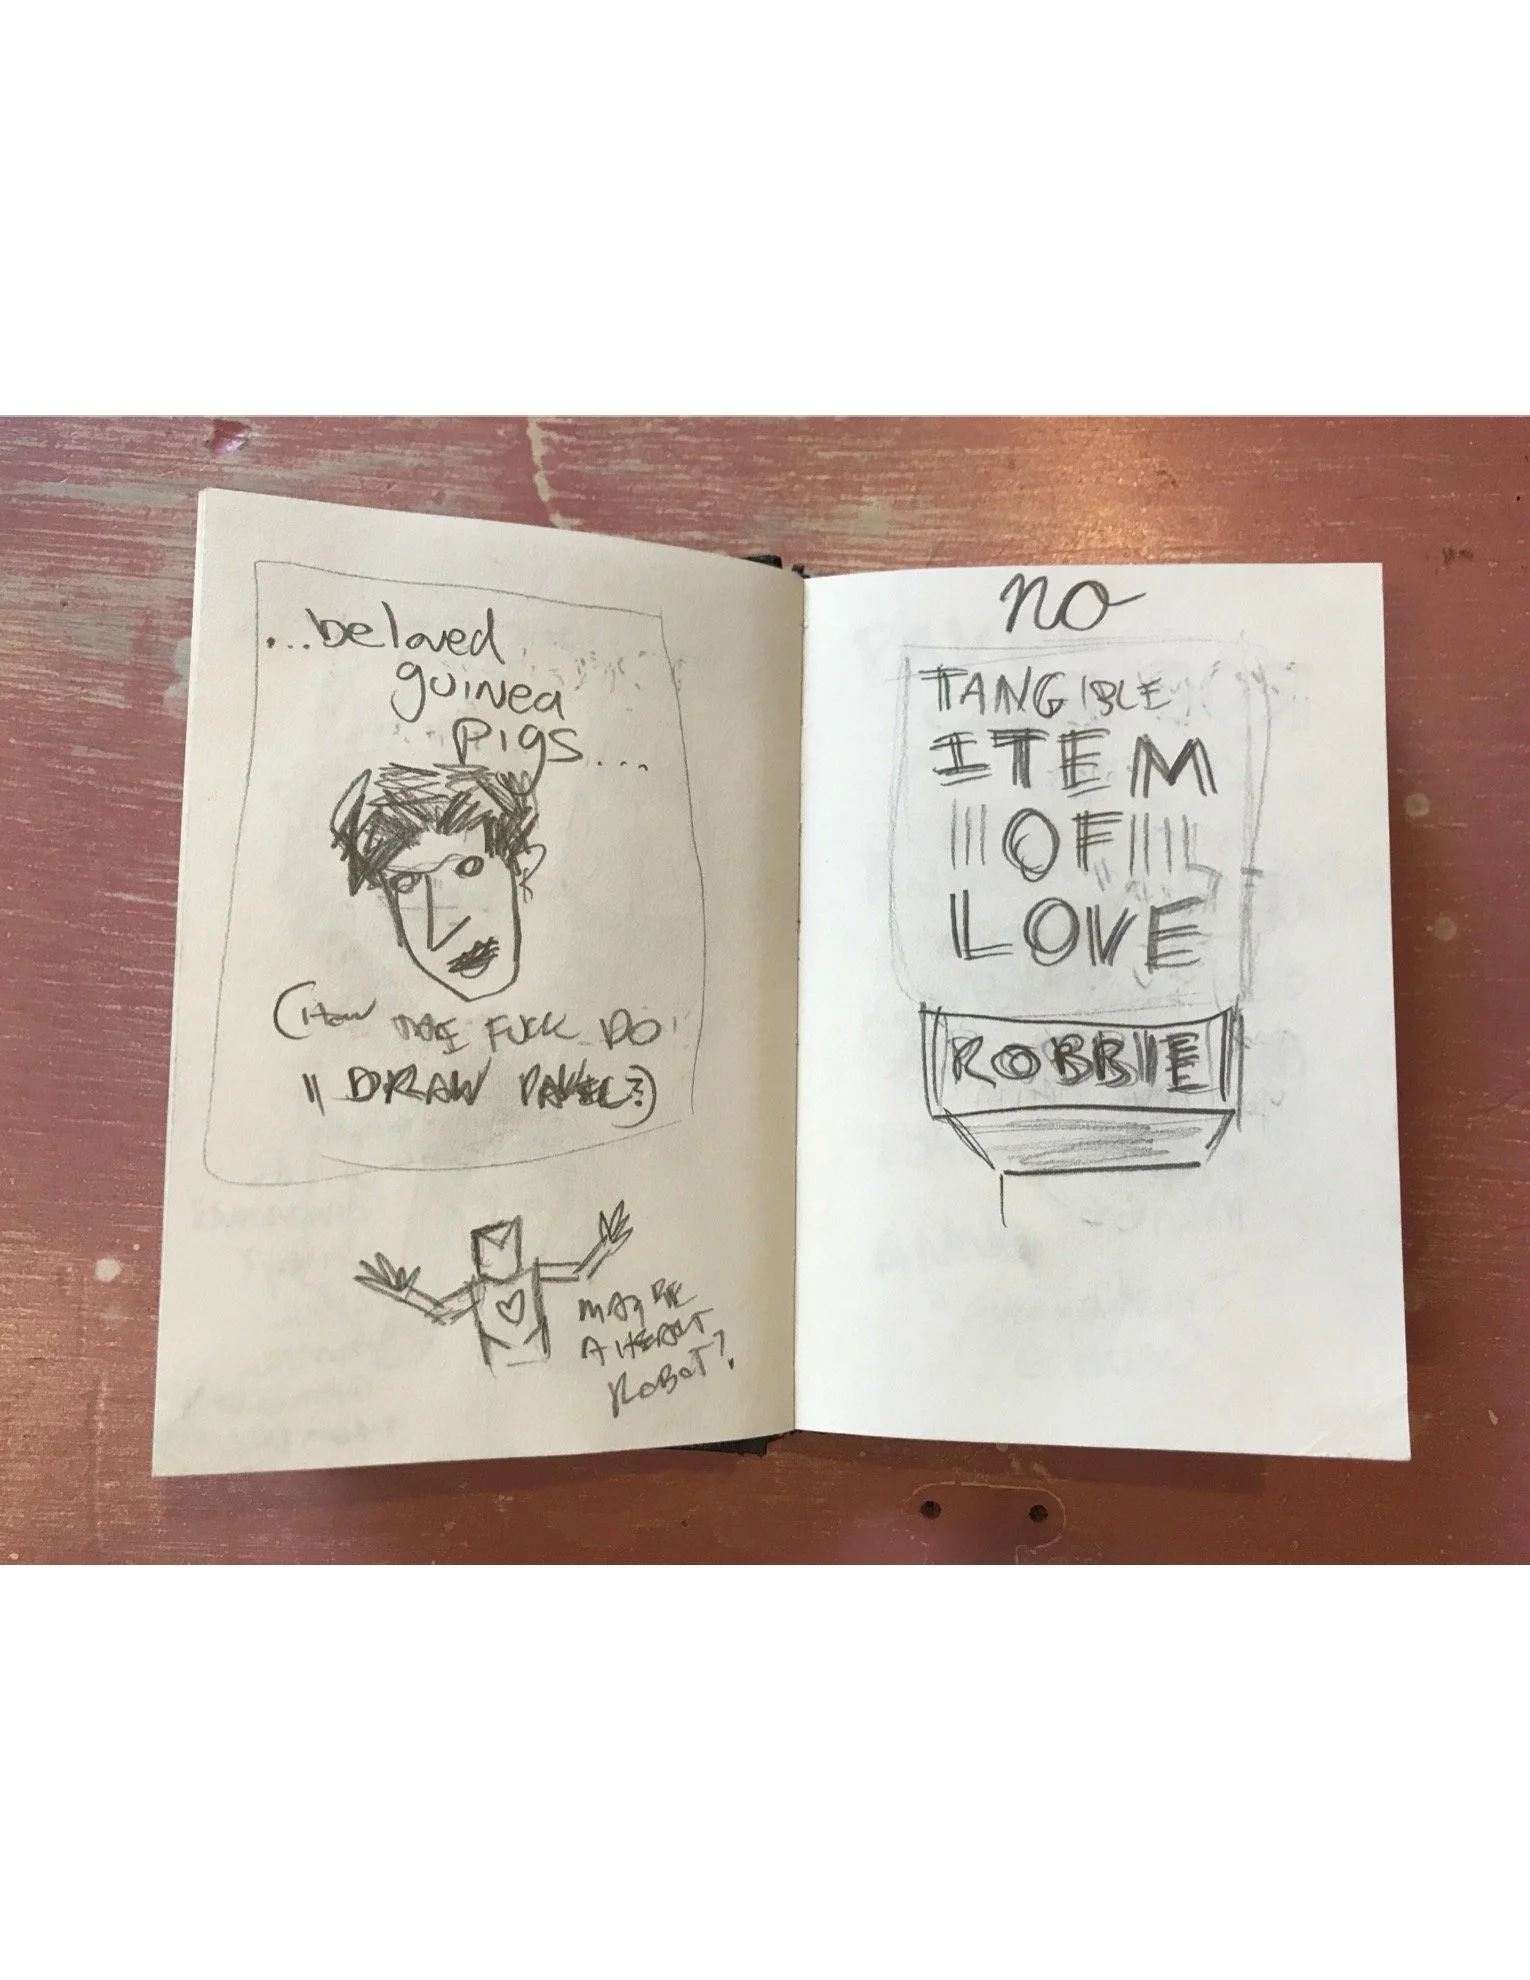 ...beloved
guinea
pigs...
(How THE FUCK DO
I DRAW PAVEL?)
MAYBE
A HEART
ROBOT?
no
TANGIBLE
ITEM
OF
LOVE
ROBBIE